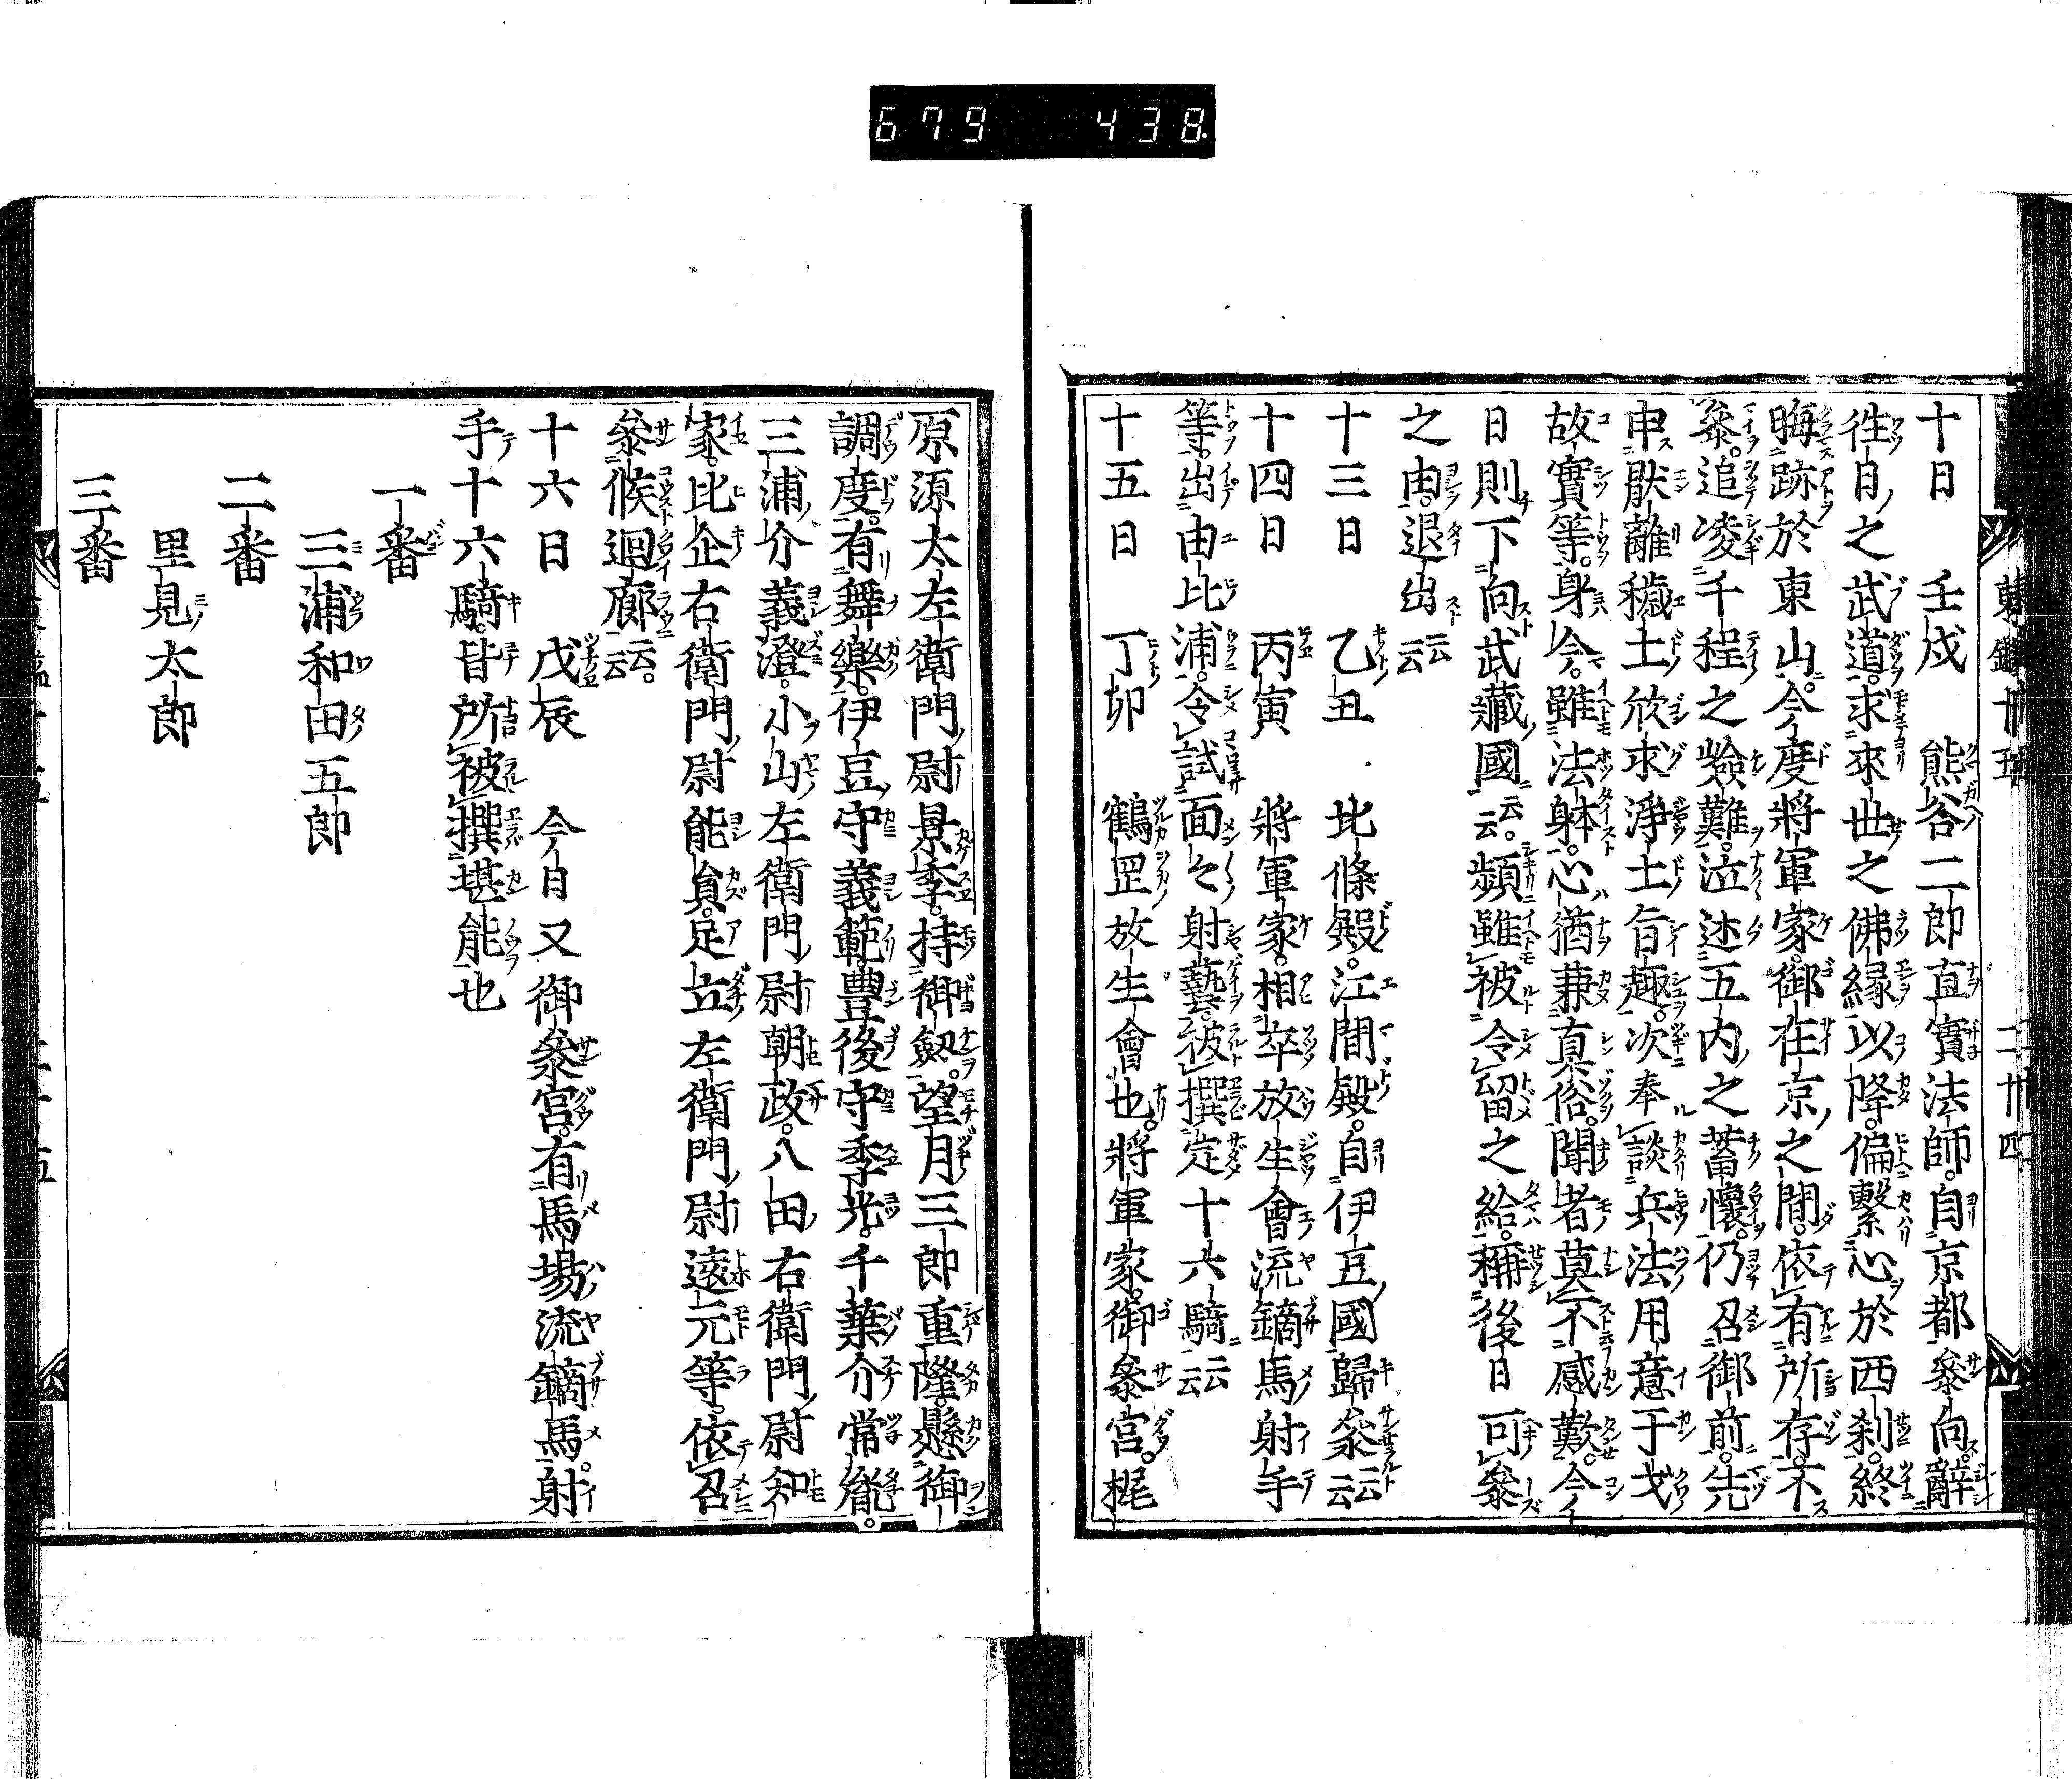 679 438.
十日 壬戌 熊谷二郎直實法師。自京都參向。辭
徃日之武道。求來世之佛縁以降。偏繫心於西刹。終
晦跡於東山。今度將軍家。御在京之間。依有所存。不
參。追凌千程之嶮難。泣述五内之蓄懷。仍召御前。先
申厭離穢土欣求淨土旨趣。次奉談兵法用意干戈
故實等。身今雖法躰。心猶兼真俗。聞者莫不感歎。今
日則下向武藏國云云。頻雖被令留之給。稱後日可參
之由。退出云云
十三日 乙丑 北條殿。江間殿。自伊豆國歸參云云
十四日 丙寅 將軍家。相率放生會流鏑馬射手
等。出由比浦。令試面々射藝。被撰定十六騎云云
十五日 丁卯 鶴岡放生會也。將軍家。御參宮。梶
原源太左衛門尉景季。持御劔。望月三郎重隆。懸御
調度。有舞樂。伊豆守義範。豊後守季光。千葉介常胤。
三浦介義澄。小山左衛門尉朝政。八田右衛門尉知
家。比企右衛門尉能員。足立左衛門尉遠元等。依召
參候迴廊云云。
十六日 戊辰 今日又御參宮。有馬場流鏑馬。射
手十六騎。皆所被撰堪能也
一番
三浦和田五郎
二番
里見太郎
三番